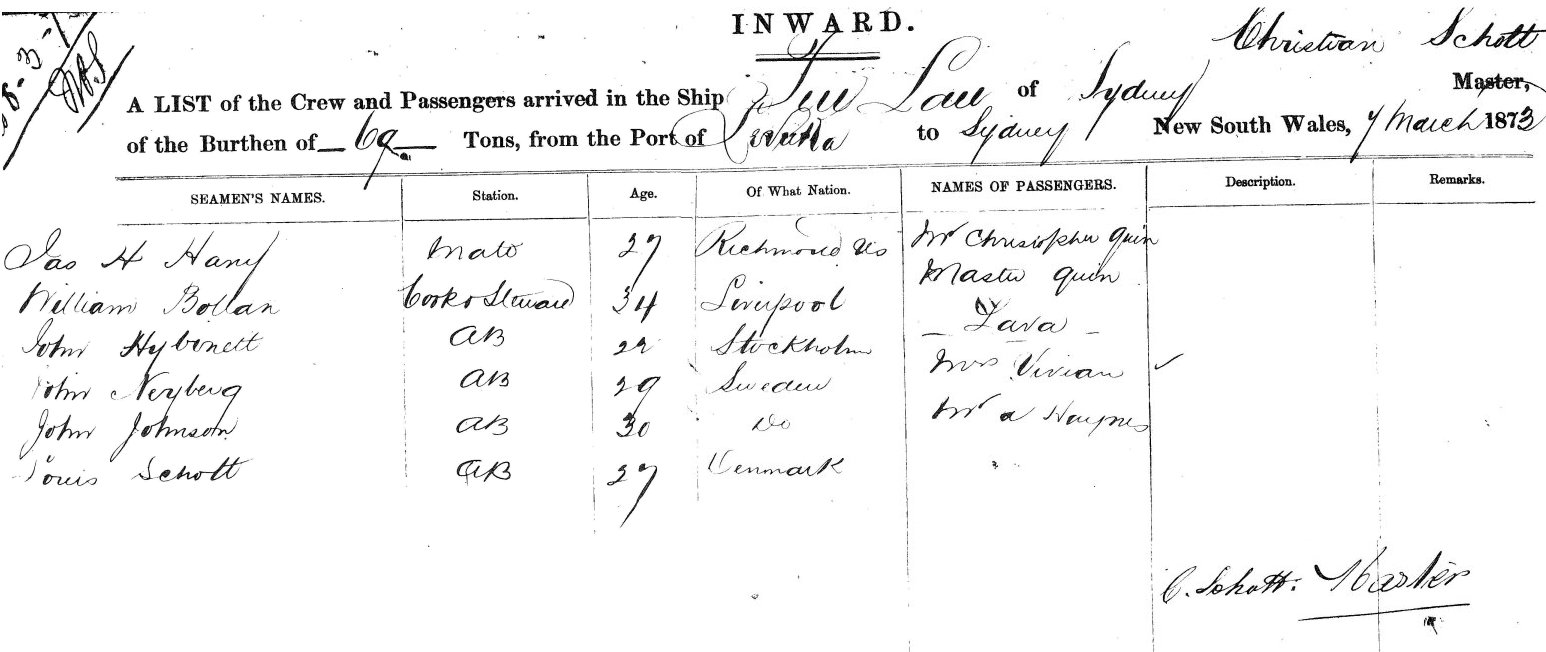 INWARD.
Christian Schott
A LIST of the Crew and Passengers arrived in the Ship of Sydney Master,
of the Burthen of 69 Tons, from the Port of to Sydney New South Wales, 7 March 1873
SEAMEN'S NAMES. Station. Age. Of What Nation. NAMES OF PASSENGERS. Description. Remarks.
Jas H Mate 27 Richmond US Mr Christopher Quin
William Bollan Cook & Steward 34 Liverpool Master Quin
John Hybinett AB 22 Stockholm - Lava -
John Neyberg AB 29 Sweden Mrs Vivian ✓
John Johnson AB 30 Do Mr A Haynes
Louis Schott AB 27 Denmark
C. Schott. Master